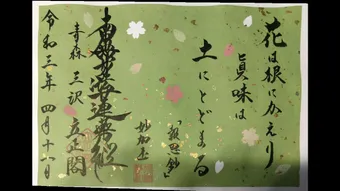 花は根にかえり
真味は
土にとどまる
「報恩鈔」
妙加玉
南無妙法蓮華経
青森 三沢 立正閣
令和三年 四月十八日